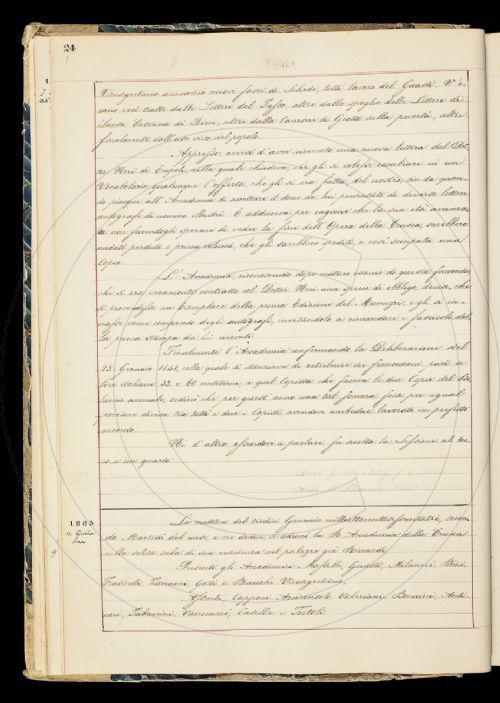 24
Vicesegretario annunzio nuovi fasci di Schede, tutte lavoro del Guasti. V'e-
rano voci tratte dalle Lettere del Tasso, altre dallo spoglio delle Lettere di
Santa Caterina de' Ricci, altre dalla Canzone di Giotto sulla povertà, altre
finalmente dall'uso vivo del popolo.
Appresso, avvisò d'aver ricevuto una nuova lettera dal Dot-
tor Neri di Empoli, nella quale chiedeva, che gli si volesse cambiare in un
Vocabolario qualunque l'offerta che gli si era fatta del nostro, sin da quan-
do piacque all'Accademia di accettare il dono da lui presentato di diverse lettere
autografe di uomini illustri. E adduceva per ragione che la sua età avanzata
non facendogli sperare di veder la fine dell'Opera della Crusca, sarebbero
andati perduti i primi volumi, che gli sarebbero spediti, e così sciupata una
Copia.
L'Accademia, riconoscendo dopo maturo esame di questa faccenda
che si era veramente contratto col Dottor Neri una specie di obbligo, decise, che
si provvedesse un Esemplare della prima Edizione del Manuzzi, e gli si in-
viasse come compenso degli autografi, invitandolo a rimandare i fascicoli del-
la prima stampa da lui ricevuti.
Finalmente l'Accademia confermando la Deliberazione del
25 Gennaio 1848, nella quale si stanziava di retribuire sei francesconi, pari a
lire italiane 33. e 60 centesimi, a quel Copista che faceva le due Copie del Bi-
lancio annuale, ordinò che per quest'anno una tal somma fosse per egual
porzione divisa tra tutti e due i Copisti, avendo ambedue lavorato in perfetto
accordo.
Nè d'altro essendovi a parlare fu sciolta la Sessione al toc-
co e un quarto.
1863
13. Genn.
9
La mattina del tredici Gennaio milleottocentosessantatrè, secon-
do Martedì del mese a ore dodici si adunò la R. Accademia della Crusca
nella solita sala di sua residenza nel palazzo già Riccardi.
Presenti gli Accademici Masselli, Guasti, Milanesi, Bini,
Fraticelli, Zannoni, Gotti e Bianchi Vicesegretario.
Assenti, Capponi Arciconsolo, Valeriani, Bonaini, Arci-
Tabarrini, Vannucci, Casella e Tortoli.